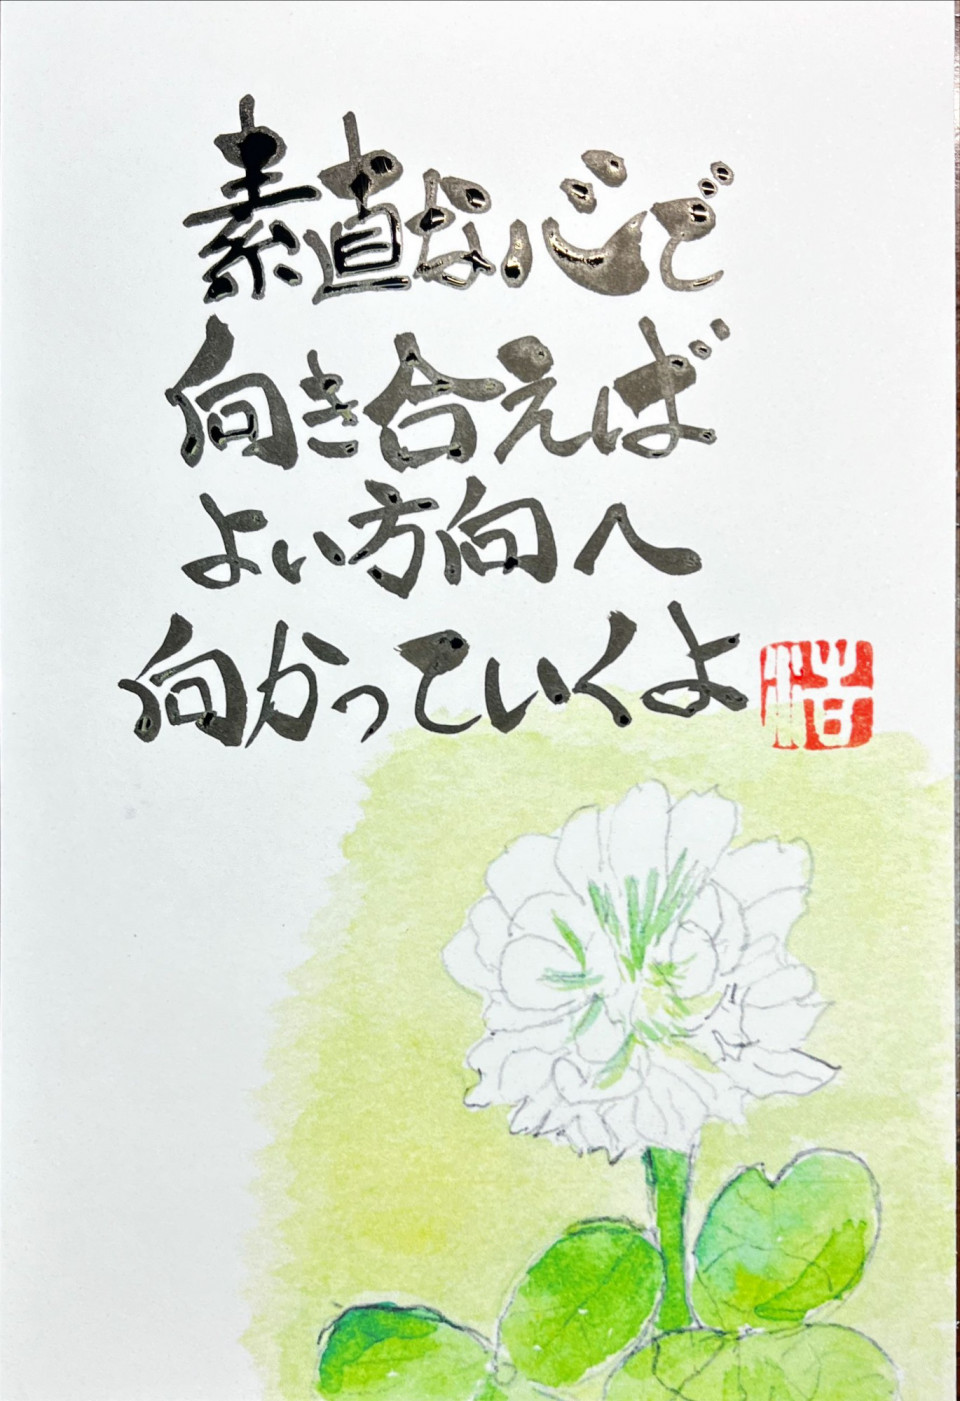 素直な心で
向き合えば
よい方向へ
向かっていくよ